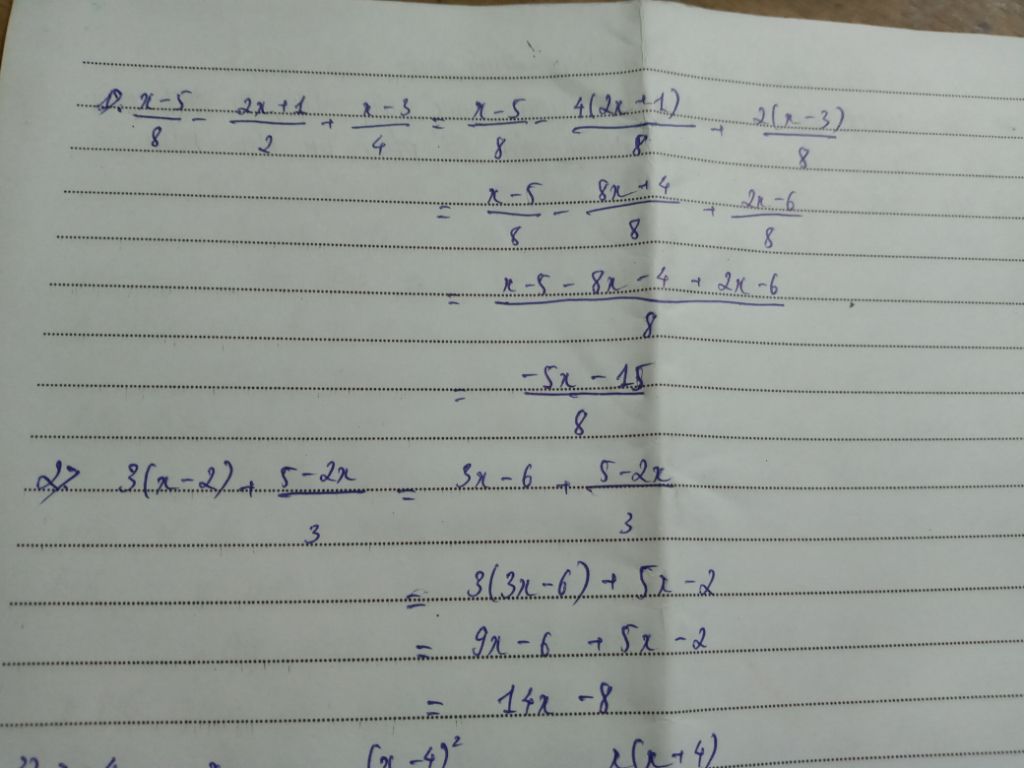 1. (x-5)/8 - (2x+1)/2 + (x-3)/4 = (x-5)/8 - 4(2x+1)/8 + 2(x-3)/8
= (x-5)/8 - (8x+4)/8 + (2x-6)/8
= (x-5-8x-4+2x-6)/8
= (-5x-15)/8
2> 3(x-2) + (5-2x)/3 = 3x-6 + (5-2x)/3
= 3(3x-6) + 5x-2
= 9x-6 + 5x-2
= 14x-8
(x-4)² x(x+4)